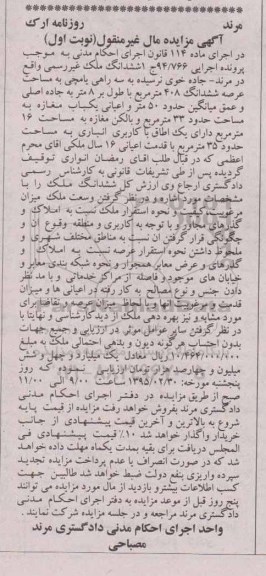 مرند روزنامه ارک
آگهی مزایده مال غیرمنقول(نوبت اول)
در اجرای ماده ۱۱۴ قانون اجرای احکام مدنی به موجب
پرونده اجرایی ۹۴/۷۶۶ج ۱ششدانگ ملک غیررسمی واقع
در مرند- جاده خوی نرسیده به سه راهی یامچی به مساحت
عرصه ششدانگ ۴۰۸ مترمربع با طول بر ۸ متر به جاده اصلی
و عمق میانگین حدود ۵۰ متر و اعیانی یکباب مغازه به
مساحت حدود ۳۳ مترمربع و بالکن مغازه به مساحت ۱۶
مترمربع دارای یک اطاق با کاربری انباری به مساحت
حدود ۳۵ مترمربع با قدمت اعیانی ۱۶ سال ملکی آقای محرم
اعظمی که در قبال طلب آقای رمضان انواری توقیف
گردیده پس از طی تشریفات قانونی به کارشناس رسمی
دادگستری ارجاع وی ارزش کل ششدانگ ملک را با
مشخصات مورد اشاره و در نظر گرفتن وسعت ملک میزان
مرغوبیت نحوه استقرار ملک نسبت به املاک و
گذرهای مجاور و با توجه به کاربری و منطقه وقوع آن و
چگونگی قرار گرفتن آن نسبت به مناطق مختلف شهری و
ملحوظ داشتن نحوه استقرار عرصه نسبت به املاک و
گذرهای و عرض معابر همجوار و نحوه شبکه بندی معابر و
خیابان های موجود و فاصله از مراکز خدماتی و با مد نظر
دادن جنس و نوع مصالح به کار رفته در اعیانی ها و میزان
قدمت و مرغوبیت آنها و با لحاظ میزان عرضه و تقاضا برای
مورد مشابه و نیز بهره دهی ملک از دید کارشناسی و نهایتا با
در نظر گرفتن سایر عوامل موثر در ارزیابی و جمیع جهات
بدون احتساب هر گونه دیون و بدهی احتمالی ملک به مبلغ
ریال معادل یک میلیارد و چهل و شش
میلیون و چهارصد هزار تومان ارزیابی نموده که روز
پنجشنبه مورخه: ۱۳۹۵/۰۲/۳۰ ساعت ۹/۰۰ الی ۱۱/۰۰
صبح از طریق مزایده در دفتر اجرای احکام مدنی
دادگستری مرند بفروش خواهد رفت مزایده از قیمت پایه
شروع به بالاترین و آخرین قیمت پیشنهادی از جانب
خریدار واگذار خواهد شد ۱۰٪ قیمت پیشنهادی فی
المجلس دریافت برای بقیه بمدت یکماه مهلت داده خواهد
شد که در صورت انصراف یا عدم پرداخت مزایده تجدید
سپرده واریزی بنفع دولت ضبط خواهد شد طالبین جهت
کسب اطلاعات بیشتر و بازدید از مال مورد مزایده می توانند
پنج روز قبل از موعد مزایده به دفتر اجرای احکام مدنی
دادگستری مرند مراجعه و در جلسه مزایده شرکت نمایند.
واحد اجرای احکام مدنی دادگستری مرند
مصباحی